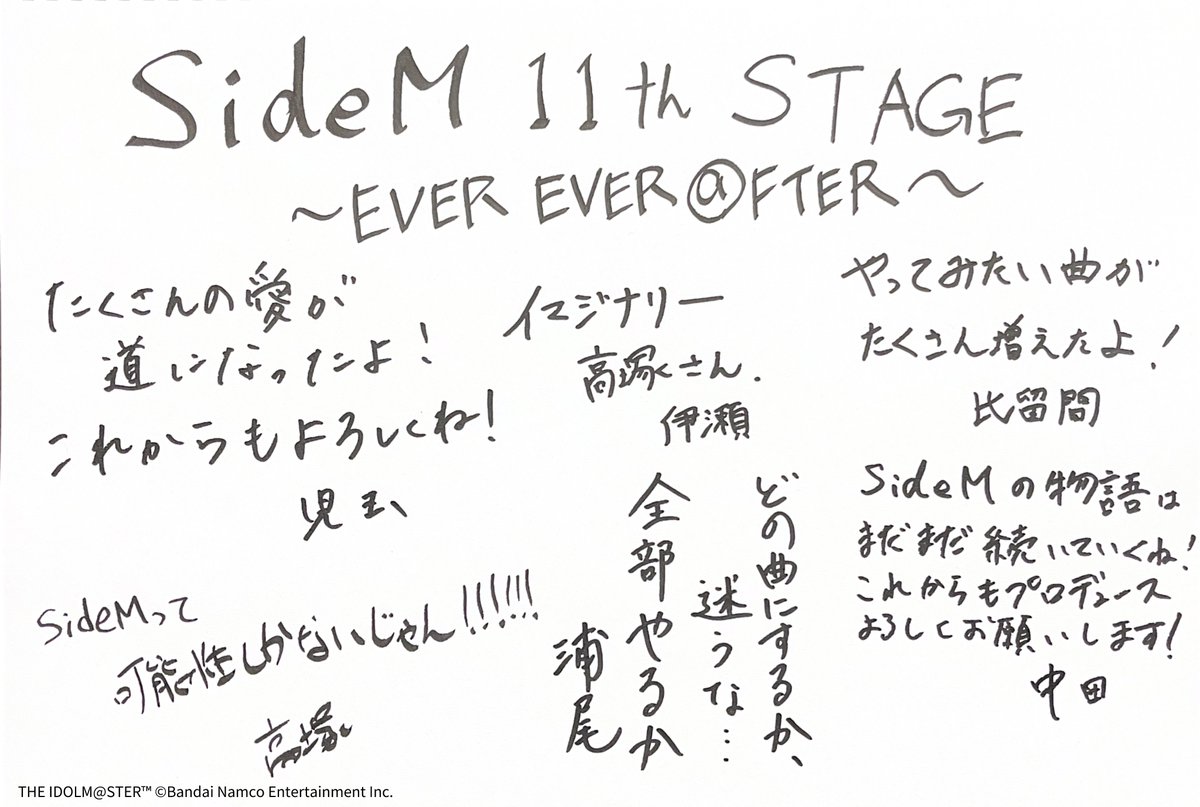 SideM 11th STAGE
～EVER EVER@FTER～
たくさんの愛が
道になったよ!
これからもよろしくね!
児玉
イマジナリー
高塚さん.
伊瀬
やってみたい曲が
たくさん増えたよ!
比留間
SideMの物語は
まだまだ続いていくね!
これからもプロデュース
よろしくお願いします!
中田
どの曲にするか、
迷うな…
全部やるか
浦尾
SideMって
可能性しかないじゃん!!!!!!
高塚
THE IDOLM@STER™ ©Bandai Namco Entertainment Inc.